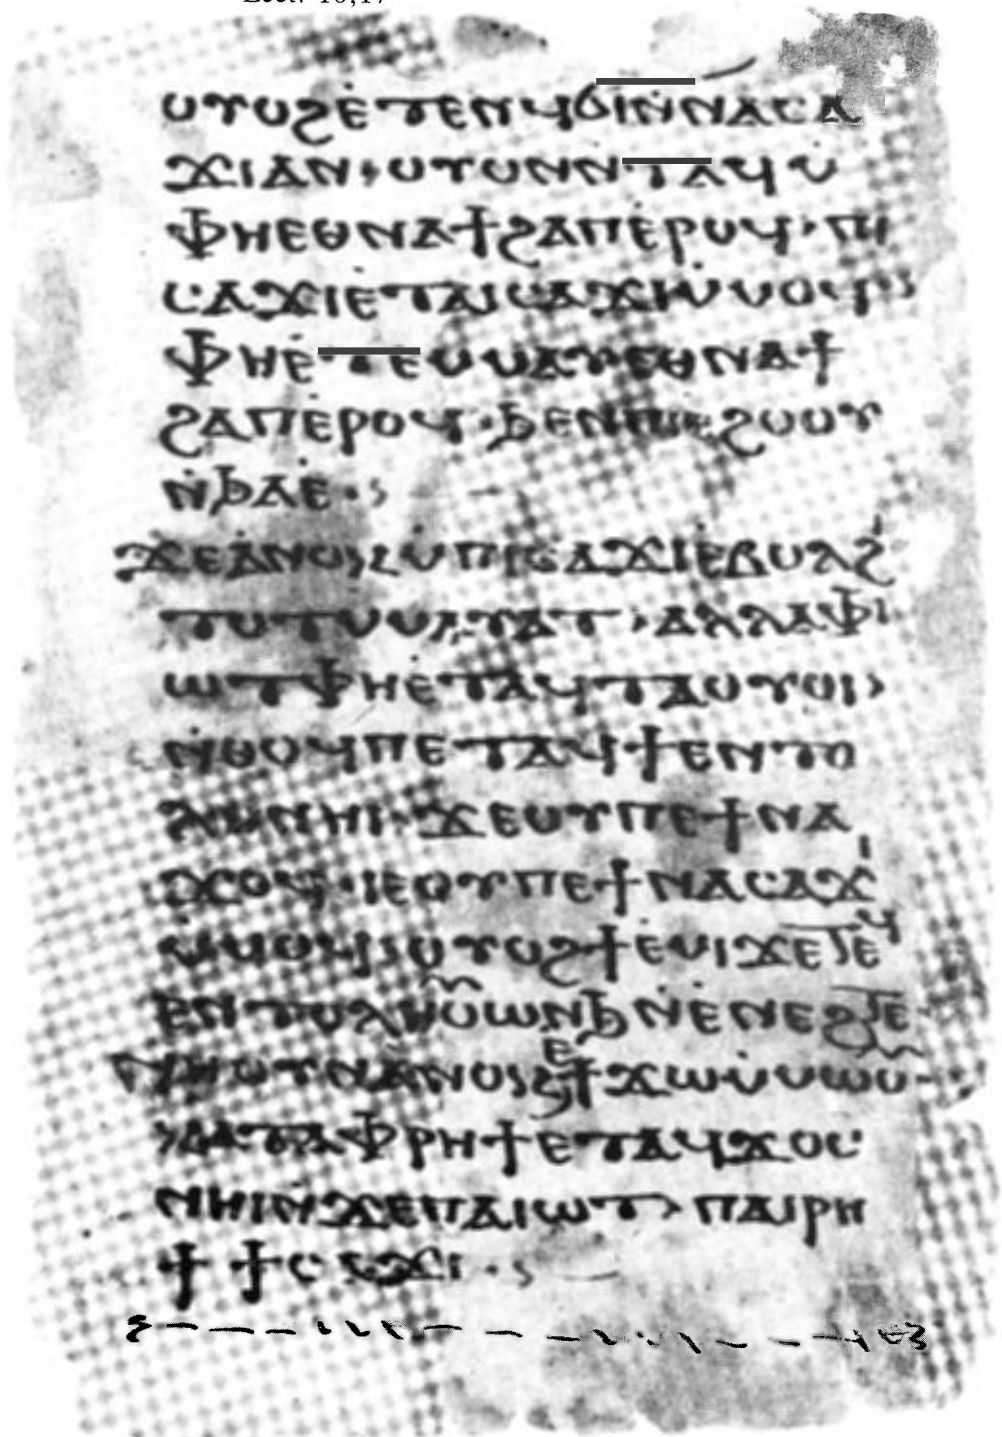 ⲟⲩⲟϩⲉⲧⲉⲛϥϭⲓⲛ̇ⲛⲁⲥⲁ
ϫⲓⲁ̇ⲛ · ⲟⲩⲟⲛⲛⲧⲁϥⲙ̇
ⲫⲏⲉⲑⲛⲁϯϩⲁⲡⲉ̇ⲣⲟϥ · ⲡⲓ
ⲥⲁϫⲓⲉ̇ⲧⲁⲓⲥⲁϫⲓⲙ̇ⲙⲟϥ
ⲫⲏⲉ̇ⲧⲉⲙⲙⲁⲩⲉⲑⲛⲁϯ
ϩⲁⲡⲉ̇ⲣⲟϥ · ϧⲉⲛⲡⲓⲉ̇ϩⲟⲟⲩ
ⲛ̇ϧⲁⲉ̇ ·
ϫⲉⲁ̇ⲛⲟⲕⲙ̇ⲡⲓⲥⲁϫⲓⲉ̇ⲃⲟⲗϩⲓ
ⲧⲟⲧⲙ̇ⲙⲁⲩⲁⲧ · ⲁⲗⲗⲁⲫⲓ
ⲱⲧⲫⲏⲉ̇ⲧⲁϥⲧⲁⲟⲩⲟⲓ
ⲛ̇ⲑⲟϥⲡⲉⲧⲁϥϯⲉⲛⲧⲟ
ⲗⲏⲛⲏⲓ · ϫⲉⲟⲩⲡⲉϯⲛⲁ
ϫⲟϥ · ⲓⲉⲟⲩⲡⲉϯⲛⲁⲥⲁϫⲓ
ⲙ̇ⲙⲟϥ ⲟⲩⲟϩϯⲉ̇ⲙⲓϫⲉⲧⲉϥ
ⲉⲛⲧⲟⲗⲏⲟⲩⲱⲛϧⲛ̇ⲉ̇ⲛⲉϩⲧⲉ
ⲛⲏⲟⲩⲛⲁ̇ⲛⲟⲕⲉϯϫⲱⲙ̇ⲙⲱⲟⲩ
ⲕⲁⲧⲁⲫⲣⲏϯⲉ̇ⲧⲁϥϫⲟⲥ
ⲛⲏⲓⲛ̇ϫⲉⲡⲁⲓⲱⲧ · ⲡⲁⲓⲣⲏ
ϯ ϯⲥⲁϫⲓ ·